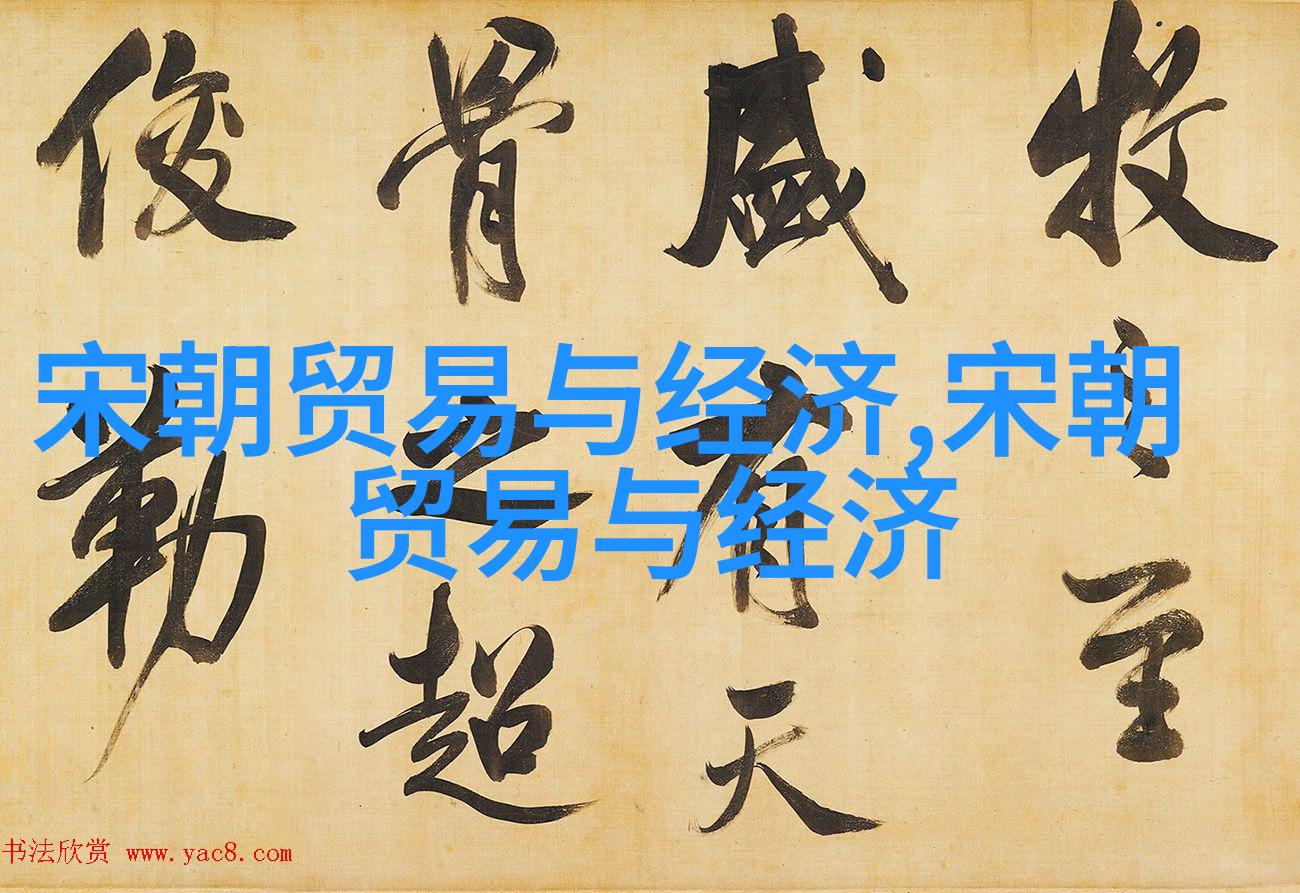 牧之至
盛有天
骨之超
俊勒
宋朝贸易与经济,宋朝
贸易与经济
书法欣赏 www.yac8.com